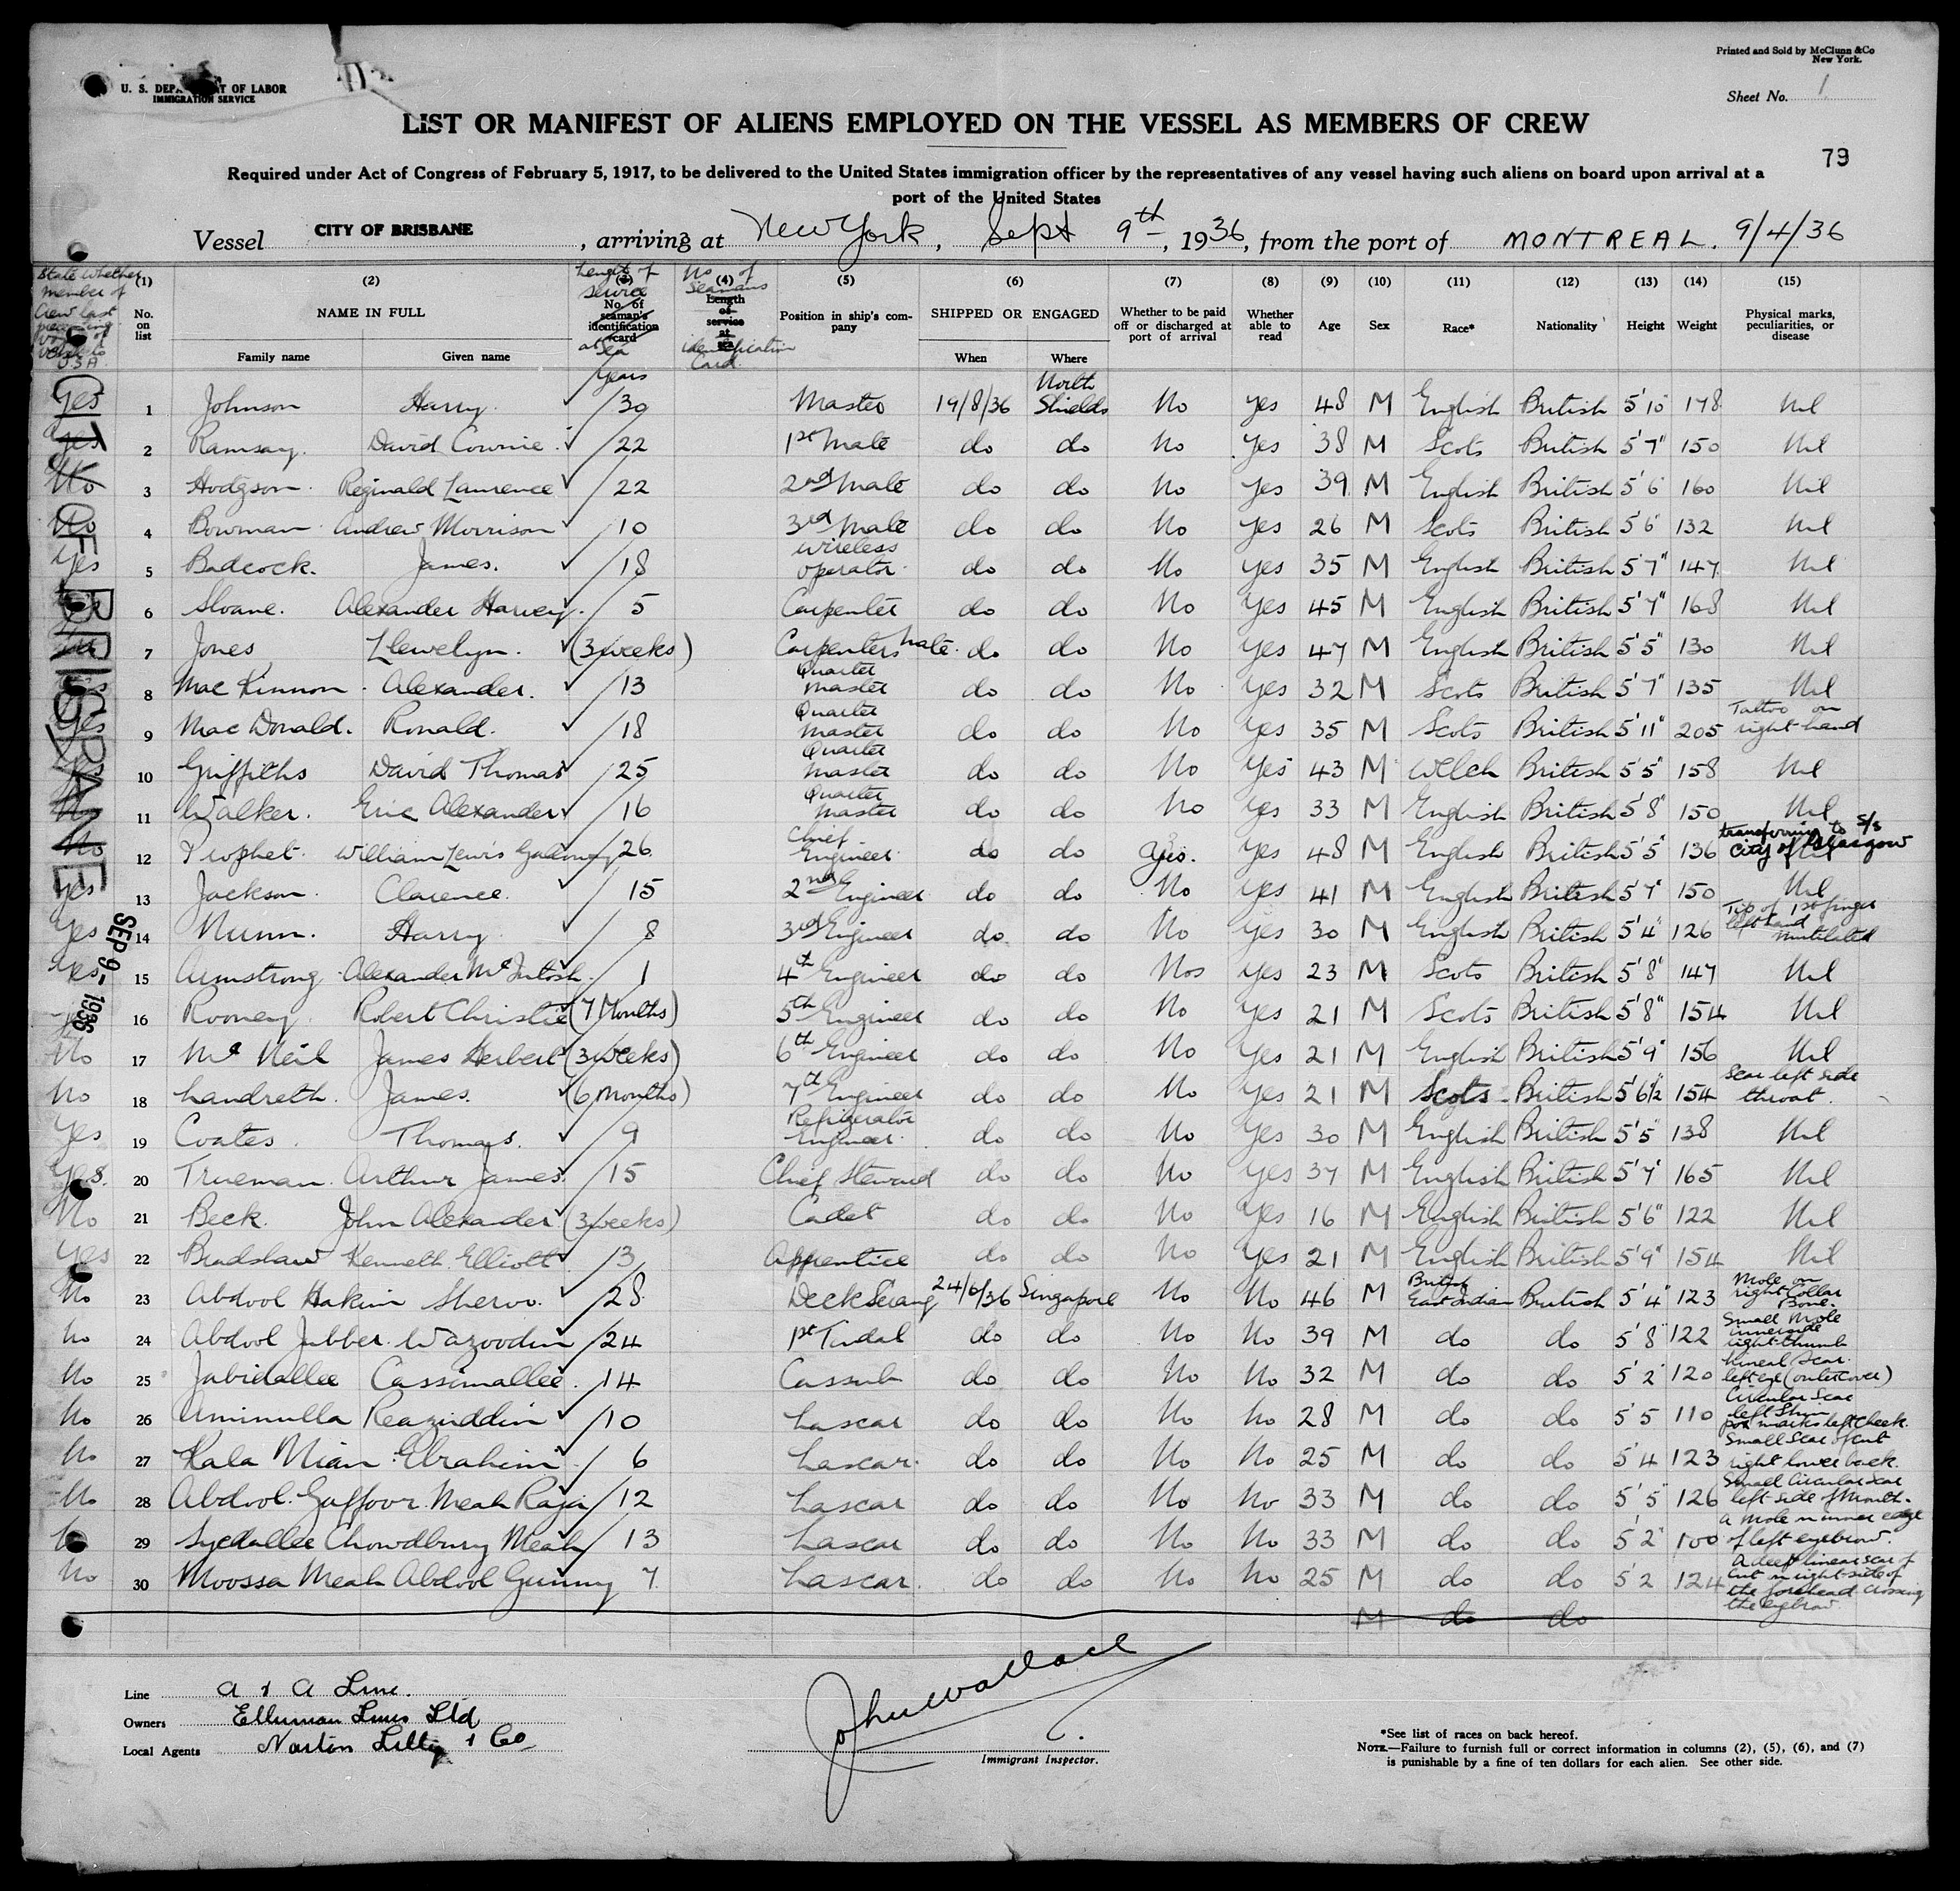 Printed and Sold by McClunn & Co
New York.
U. S. DEPARTMENT OF LABOR
IMMIGRATION SERVICE
Sheet No. 1
LIST OR MANIFEST OF ALIENS EMPLOYED ON THE VESSEL AS MEMBERS OF CREW
79
Required under Act of Congress of February 5, 1917, to be delivered to the United States immigration officer by the representatives of any vessel having such aliens on board upon arrival at a
port of the United States
Vessel CITY OF BRISBANE, arriving at New York, Sept 9th, 1936, from the port of MONTREAL. 9/4/36
State whether member of Crew last U.S.A.
(1) No. on list
(2) NAME IN FULL Family name Given name
(3) No. of seaman's identification card
Length of service at Sea Years
(4) Length of service at sea
No of Seamans identification Card.
(5) Position in ship's company
(6) SHIPPED OR ENGAGED When Where
(7) Whether to be paid off or discharged at port of arrival
(8) Whether able to read
(9) Age
(10) Sex
(11) Race*
(12) Nationality
(13) Height
(14) Weight
(15) Physical marks, peculiarities, or disease
CITY OF BRISBANE
SEP 9- 1936
Yes 1 Johnson Harry. 30 Master 19/8/36 North Shields No Yes 48 M English British 5'10" 178 Nil
Yes 2 Ramsay. David Cownie. 22 1st Mate do do No Yes 38 M Scots British 5'7" 150 Nil
No 3 Hodgson. Reginald Laurence 22 2nd Mate do do No Yes 39 M English British 5'6" 160 Nil
No 4 Bowman Andrew Morrison 10 3rd Mate do do No Yes 26 M Scots British 5'6" 132 Nil
Yes 5 Badcock. James. 18 Wireless operator. do do No Yes 35 M English British 5'7" 147 Nil
6 Sloane. Alexander Harvey. 5 Carpenter do do No Yes 45 M English British 5'7" 168 Nil
7 Jones Llewelyn. (3 weeks) Carpenters Mate. do do No Yes 47 M English British 5'5" 130 Nil
8 Mac Kinnon. Alexander. 13 Quarter Master do do No Yes 32 M Scots British 5'7" 135 Nil
Yes 9 Mac Donald. Ronald. 18 Quarter Master do do No Yes 35 M Scots British 5'11" 205 Tattoo on right hand
10 Griffiths David Thomas 25 Quarter Master do do No Yes 43 M Welch British 5'5" 158 Nil
11 Walker. Eric Alexander 16 Quarter Master do do No Yes 33 M English British 5'8" 150 Nil
No 12 Prophet. William Lewis 26 Chief Engineer. do do Yes. Yes 48 M English British 5'5" 136 transferring to S/S City of Glasgow
Yes 13 Jackson. Clarence. 15 2nd Engineer do do No Yes 41 M English British 5'7" 150 Nil
Yes 14 Nunn. Harry 8 3rd Engineer do do No Yes 30 M English British 5'4" 126 Top of 1st finger left hand mutilated
Yes 15 Armstrong Alexander McIntosh. 1 4th Engineer do do Yes 23 M Scots British 5'8" 147 Nil
16 Rooney. Robert Christie (7 Months) 5th Engineer do do No Yes 21 M Scots British 5'8" 154 Nil
No 17 Mc Neil James Herbert (3 weeks) 6th Engineer do do No Yes 21 M English British 5'9" 156 Nil
No 18 Landreth. James. (6 Months) 7th Engineer do do No Yes 21 M Scots British 5'6½" 154 Scar left side throat.
Yes 19 Coates. Thomas. 9 Refrigerator Engineer. do do No Yes 30 M English British 5'5" 138 Nil
Yes. 20 Trueman. Arthur James. 15 Chief Steward do do No Yes 37 M English British 5'7" 165 Nil
No 21 Beck. John Alexander. (3 weeks) Cadet do do No Yes 16 M English British 5'6" 122 Nil
Yes 22 Bradshaw Kenneth Elliott 3 Apprentice do do No Yes 21 M English British 5'9" 154 Nil
No 23 Abdool Hakim Sheroo. 28 Deck Serang 24/6/36 Singapore No No 46 M British East Indian British 5'4" 123 Mole on right Collar Bone.
No 24 Abdool Jubber. Wazoodin 24 1st Tindal do do No No 39 M do do 5'8" 122 Small Mole innerside right thumb
No 25 Jabidallee Cassimallee. 14 Cassub do do No No 32 M do do 5'2" 120 lineal scar. left eye (outer cover)
No 26 Aminulla Reazuddin 10 Lascar do do No No 28 M do do 5'5 110 Circular Scar left Shin pox marks left cheek.
No 27 Kala Mian Ebrahim 6 Lascar. do do No No 25 M do do 5'4 123 Small Scar of cut right lower back.
No 28 Abdool Guffoor. Meah Raja 12 Lascar do do No No 33 M do do 5'5" 126 Small Circular scar left side of Mouth.
29 Syedallee Chowdbury Meah 13 Lascar do do No No 33 M do do 5'2" 100 A Mole in inner edge of left eyebrow.
No 30 Moossa Meah Abdool Gunny 7 Lascar. do do No No 25 M do do 5'2 124 A deep linear scar of cut in right side of the forehead crossing the eyebrow.
M do do
Line A & A Line.
Owners Ellerman Lines Ltd
Local Agents Norton Lilly & Co
John Wallace
Immigrant Inspector.
*See list of races on back hereof.
NOTE.—Failure to furnish full or correct information in columns (2), (5), (6), and (7)
is punishable by a fine of ten dollars for each alien. See other side.